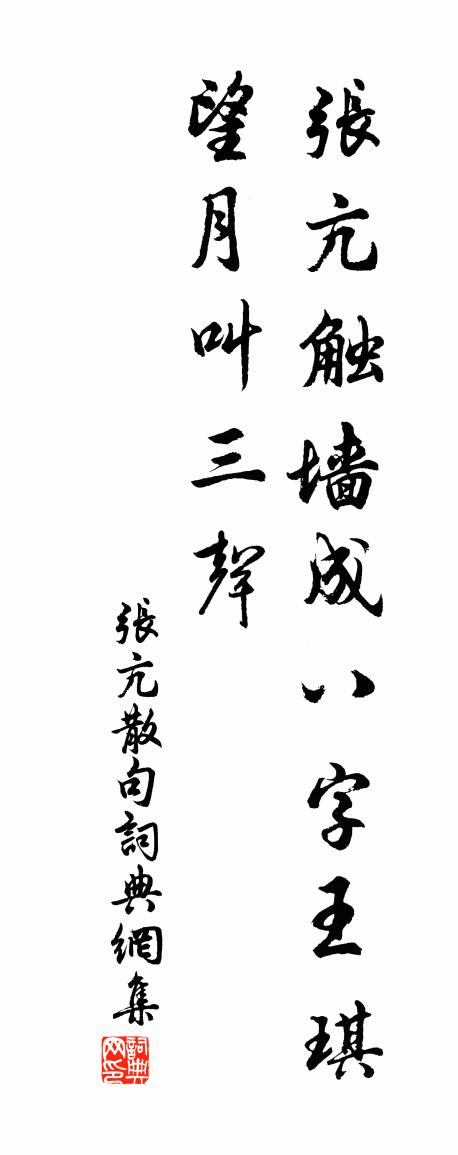 張亢触墙成八字王琪
望月叫三聲
張亢散句詞典網集
詞典网印